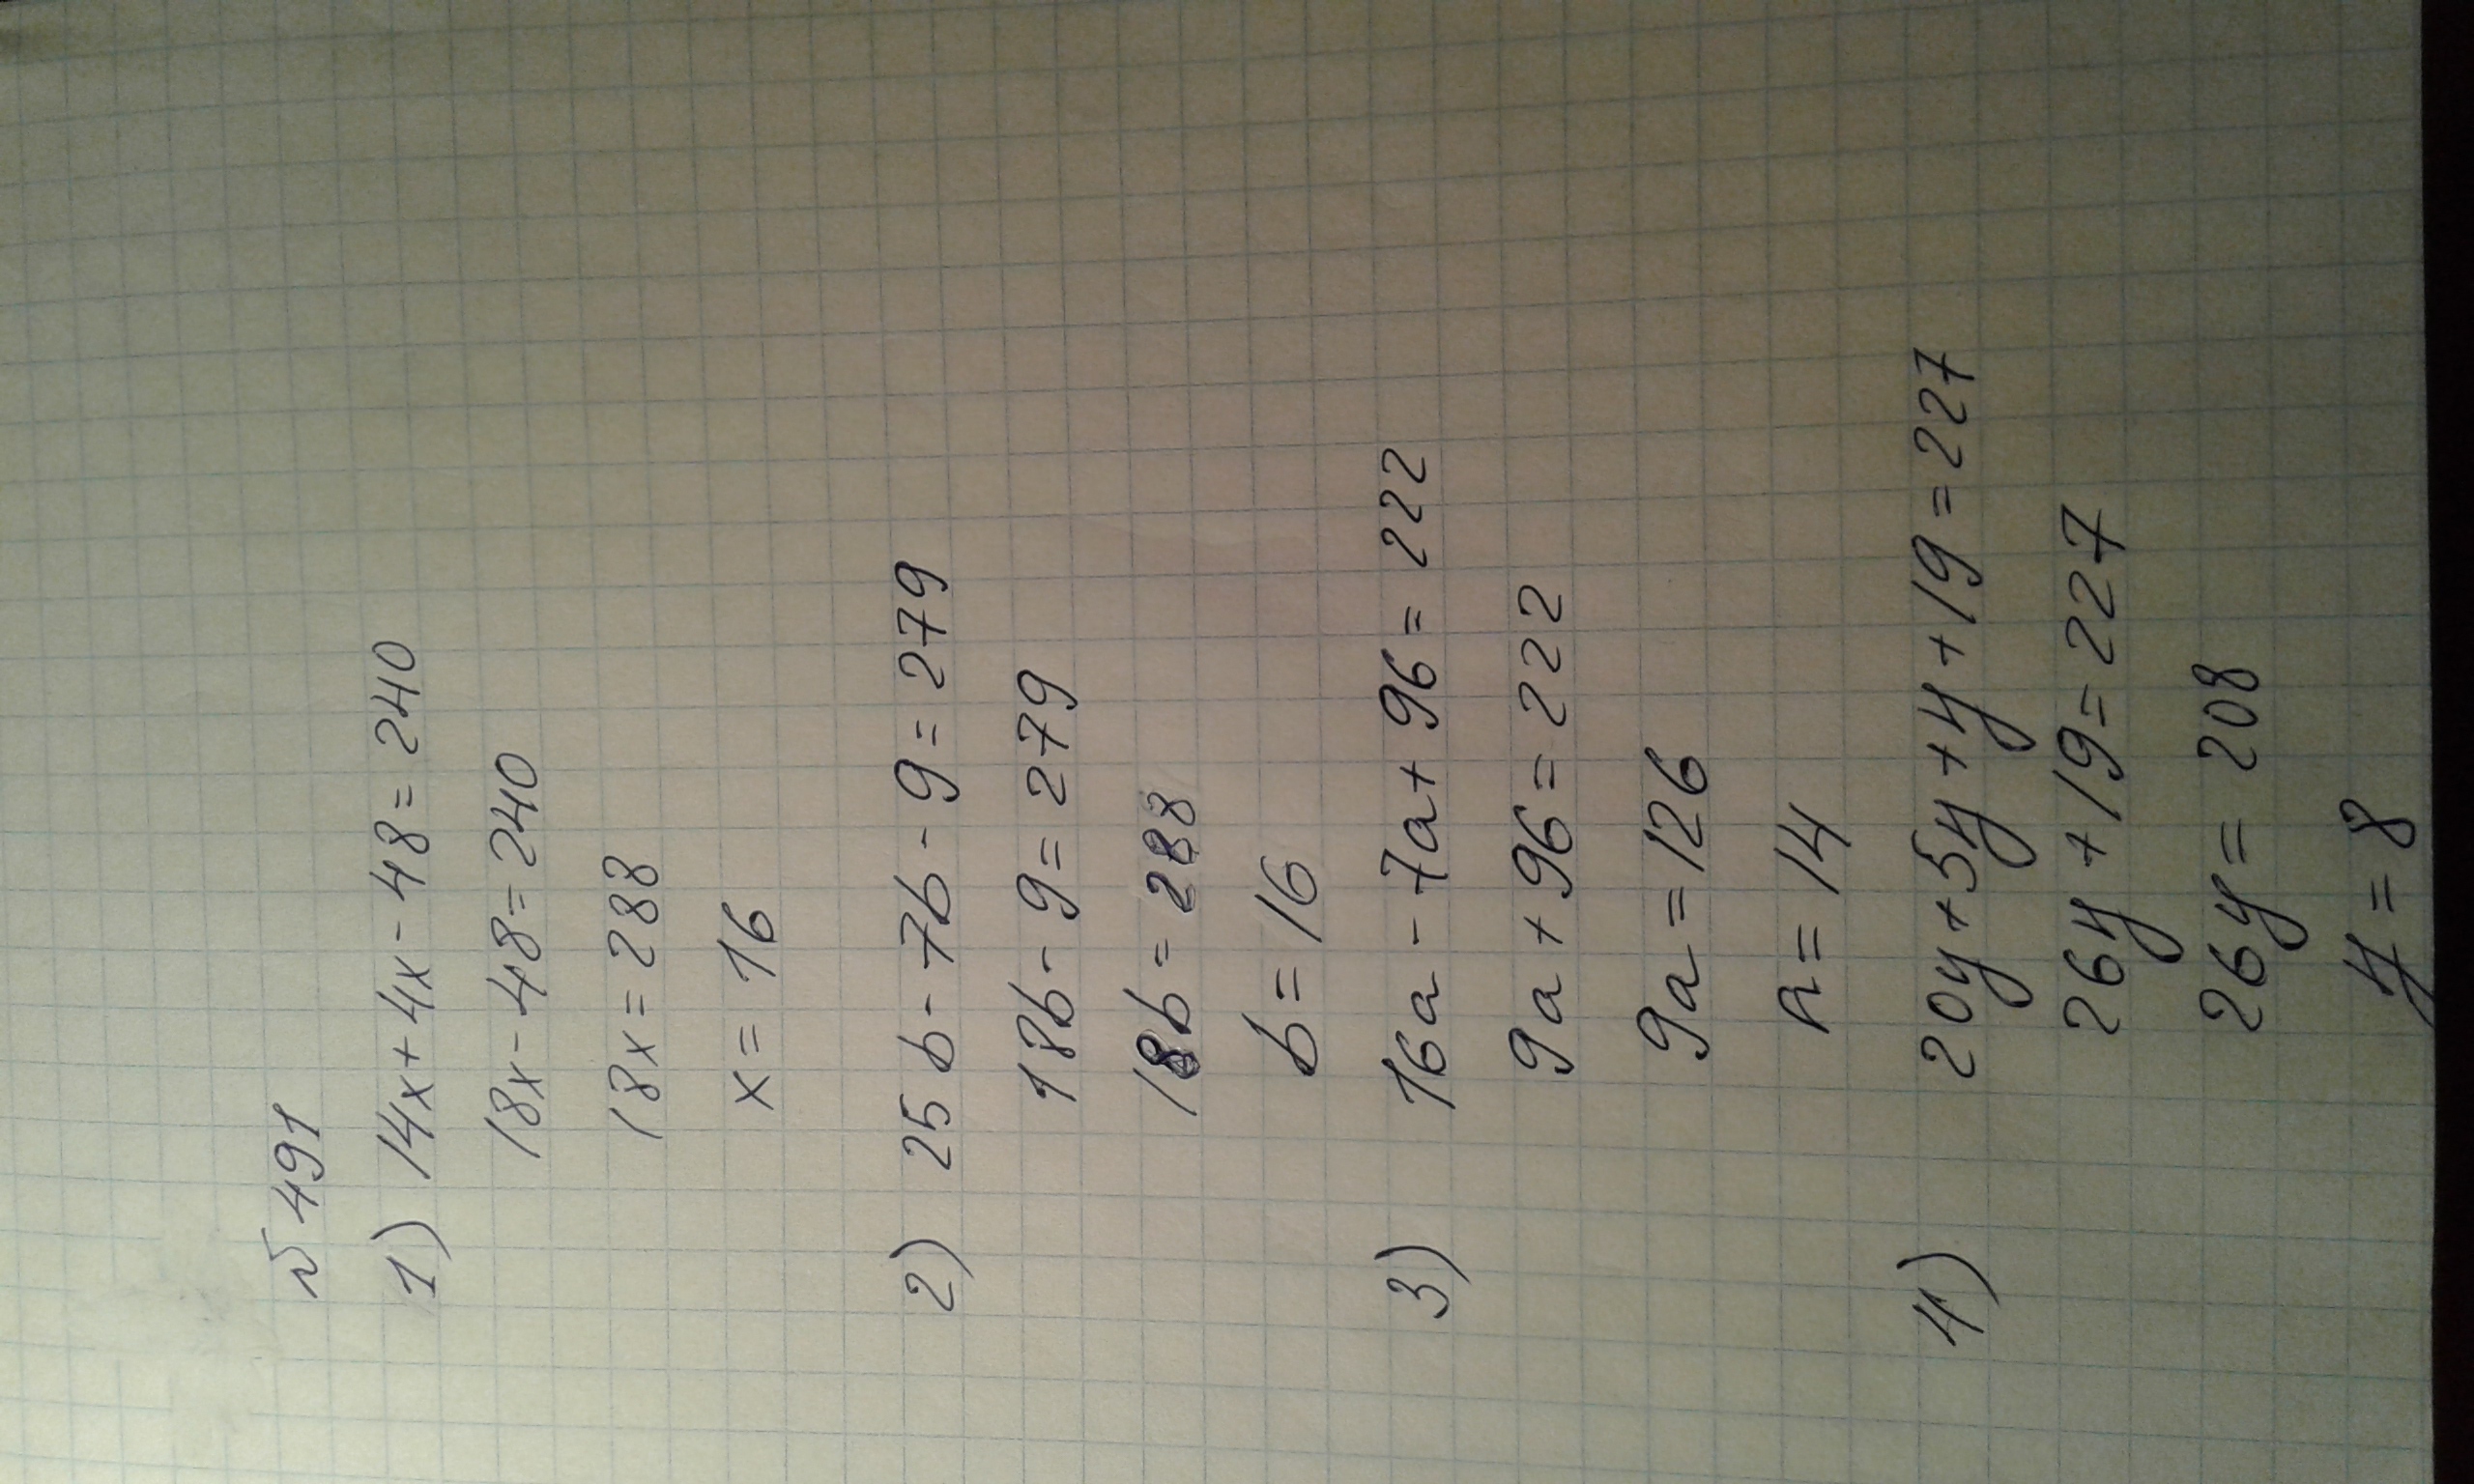 № 491
1) 14x + 4x - 48 = 240
18x - 48 = 240
18x = 288
x = 16
2) 25b - 7b - 9 = 279
18b - 9 = 279
18b = 288
b = 16
3) 16a - 7a + 96 = 222
9a + 96 = 222
9a = 126
a = 14
4) 20y + 5y + y + 19 = 227
26y + 19 = 227
26y = 208
y = 8